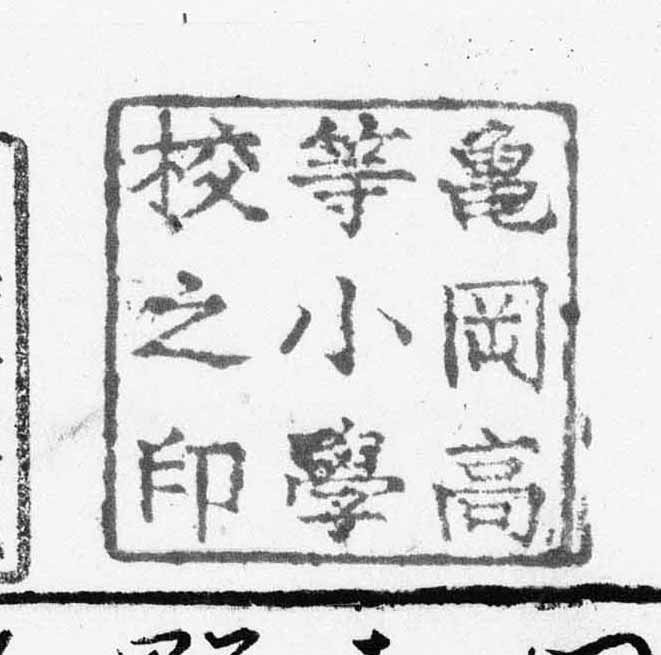 亀岡高
等小學
校之印